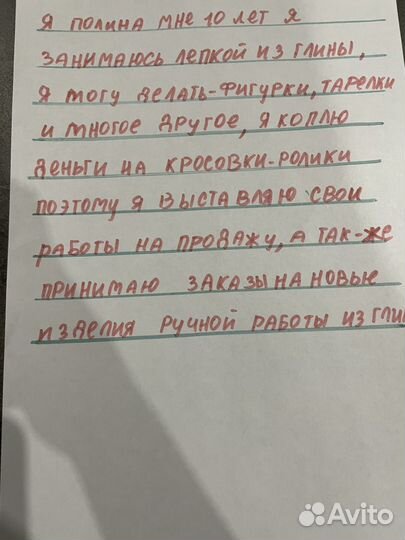 Я ПОЛИНА МНЕ 10 ЛЕТ Я
ЗАНИМАЮСЬ ЛЕПКОЙ ИЗ ГЛИНЫ,
Я МОГУ ДЕЛАТЬ-ФИГУРКИ, ТАРЕЛКИ
И МНОГОЕ ДРУГОЕ, Я КОПЛЮ
ДЕНЬГИ НА КРОСОВКИ-РОЛИКИ
ПОЭТОМУ Я ВЫСТАВЛЯЮ СВОИ
РАБОТЫ НА ПРОДАЖУ, А ТАК-ЖЕ
ПРИНИМАЮ ЗАКАЗЫ НА НОВЫЕ
ИЗДЕЛИЯ РУЧНОЙ РАБОТЫ ИЗ ГЛИ
Avito